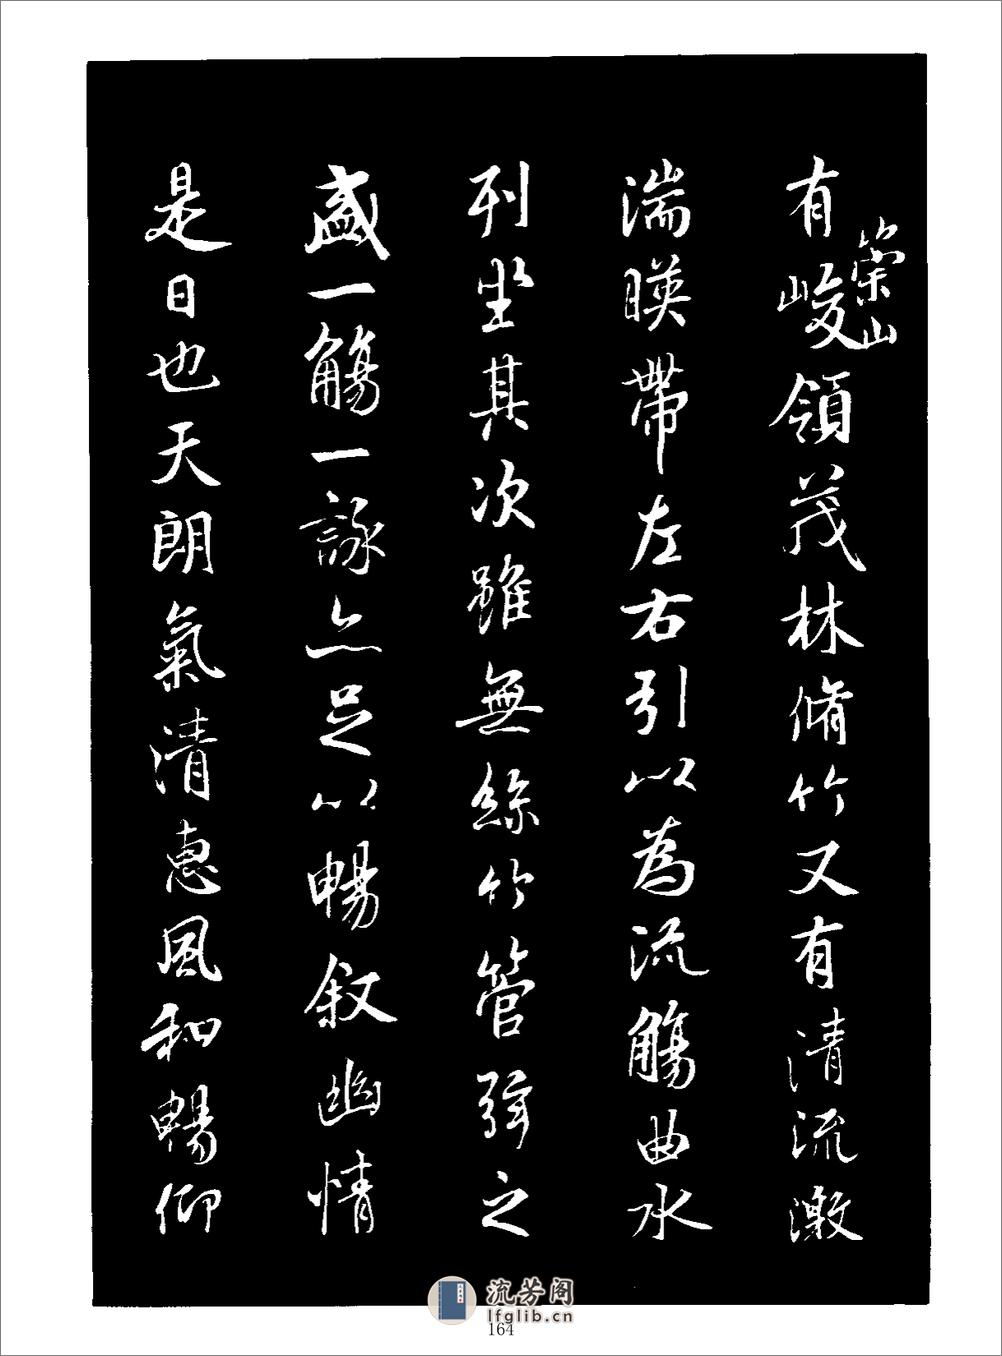 有崇山峻領茂林脩竹又有清流激
湍暎帶左右引以為流觴曲水
列坐其次雖無絲竹管弦之
盛一觴一詠亦足以暢叙幽情
是日也天朗氣清惠風和暢仰
流芳阁
lfglib.cn
164